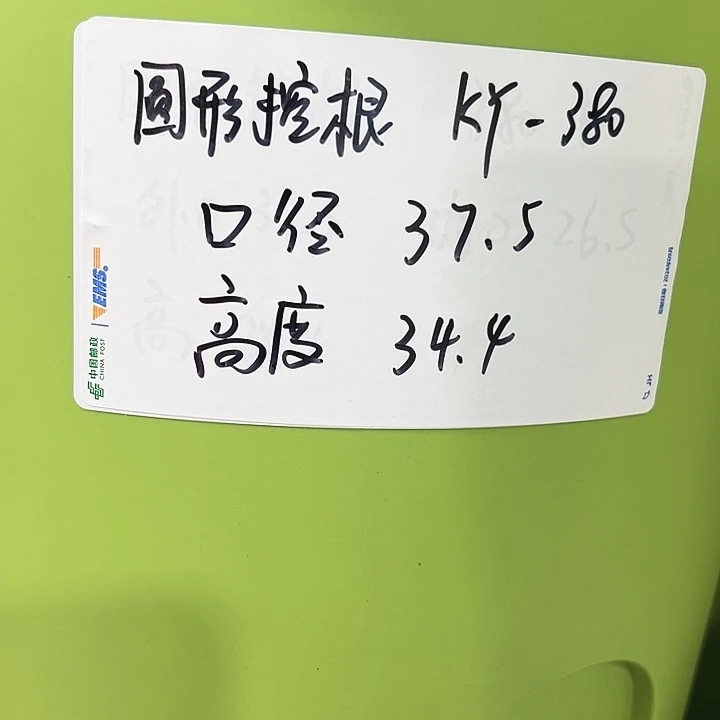 圆形控根 KY-380
口径 37.5
高度 34.4
EMS
中国邮政
CHINA POST